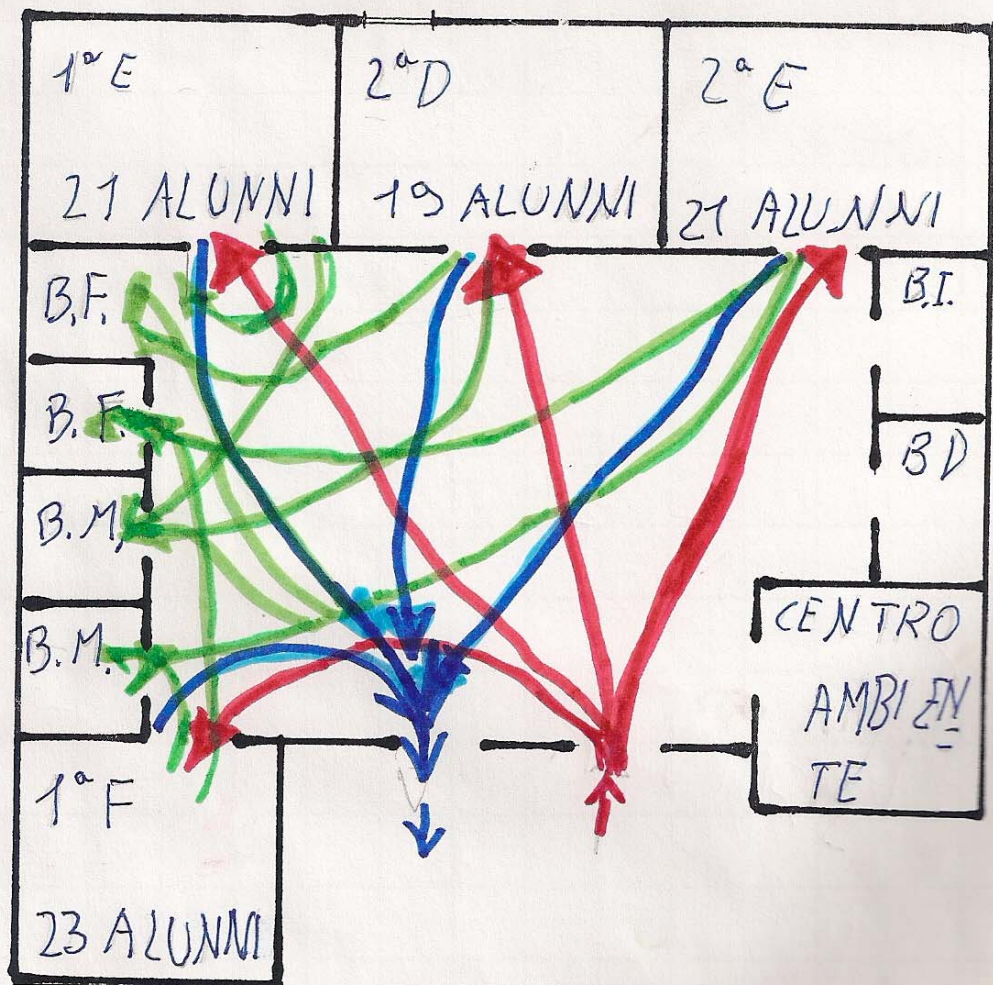 1ª E
21 ALUNNI
2ª D
19 ALUNNI
2ª E
21 ALUNNI
B.F.
B.F.
B.M.
B.M.
B.I.
BD
CENTRO
AMBIEN
TE
1ª F
23 ALUNNI